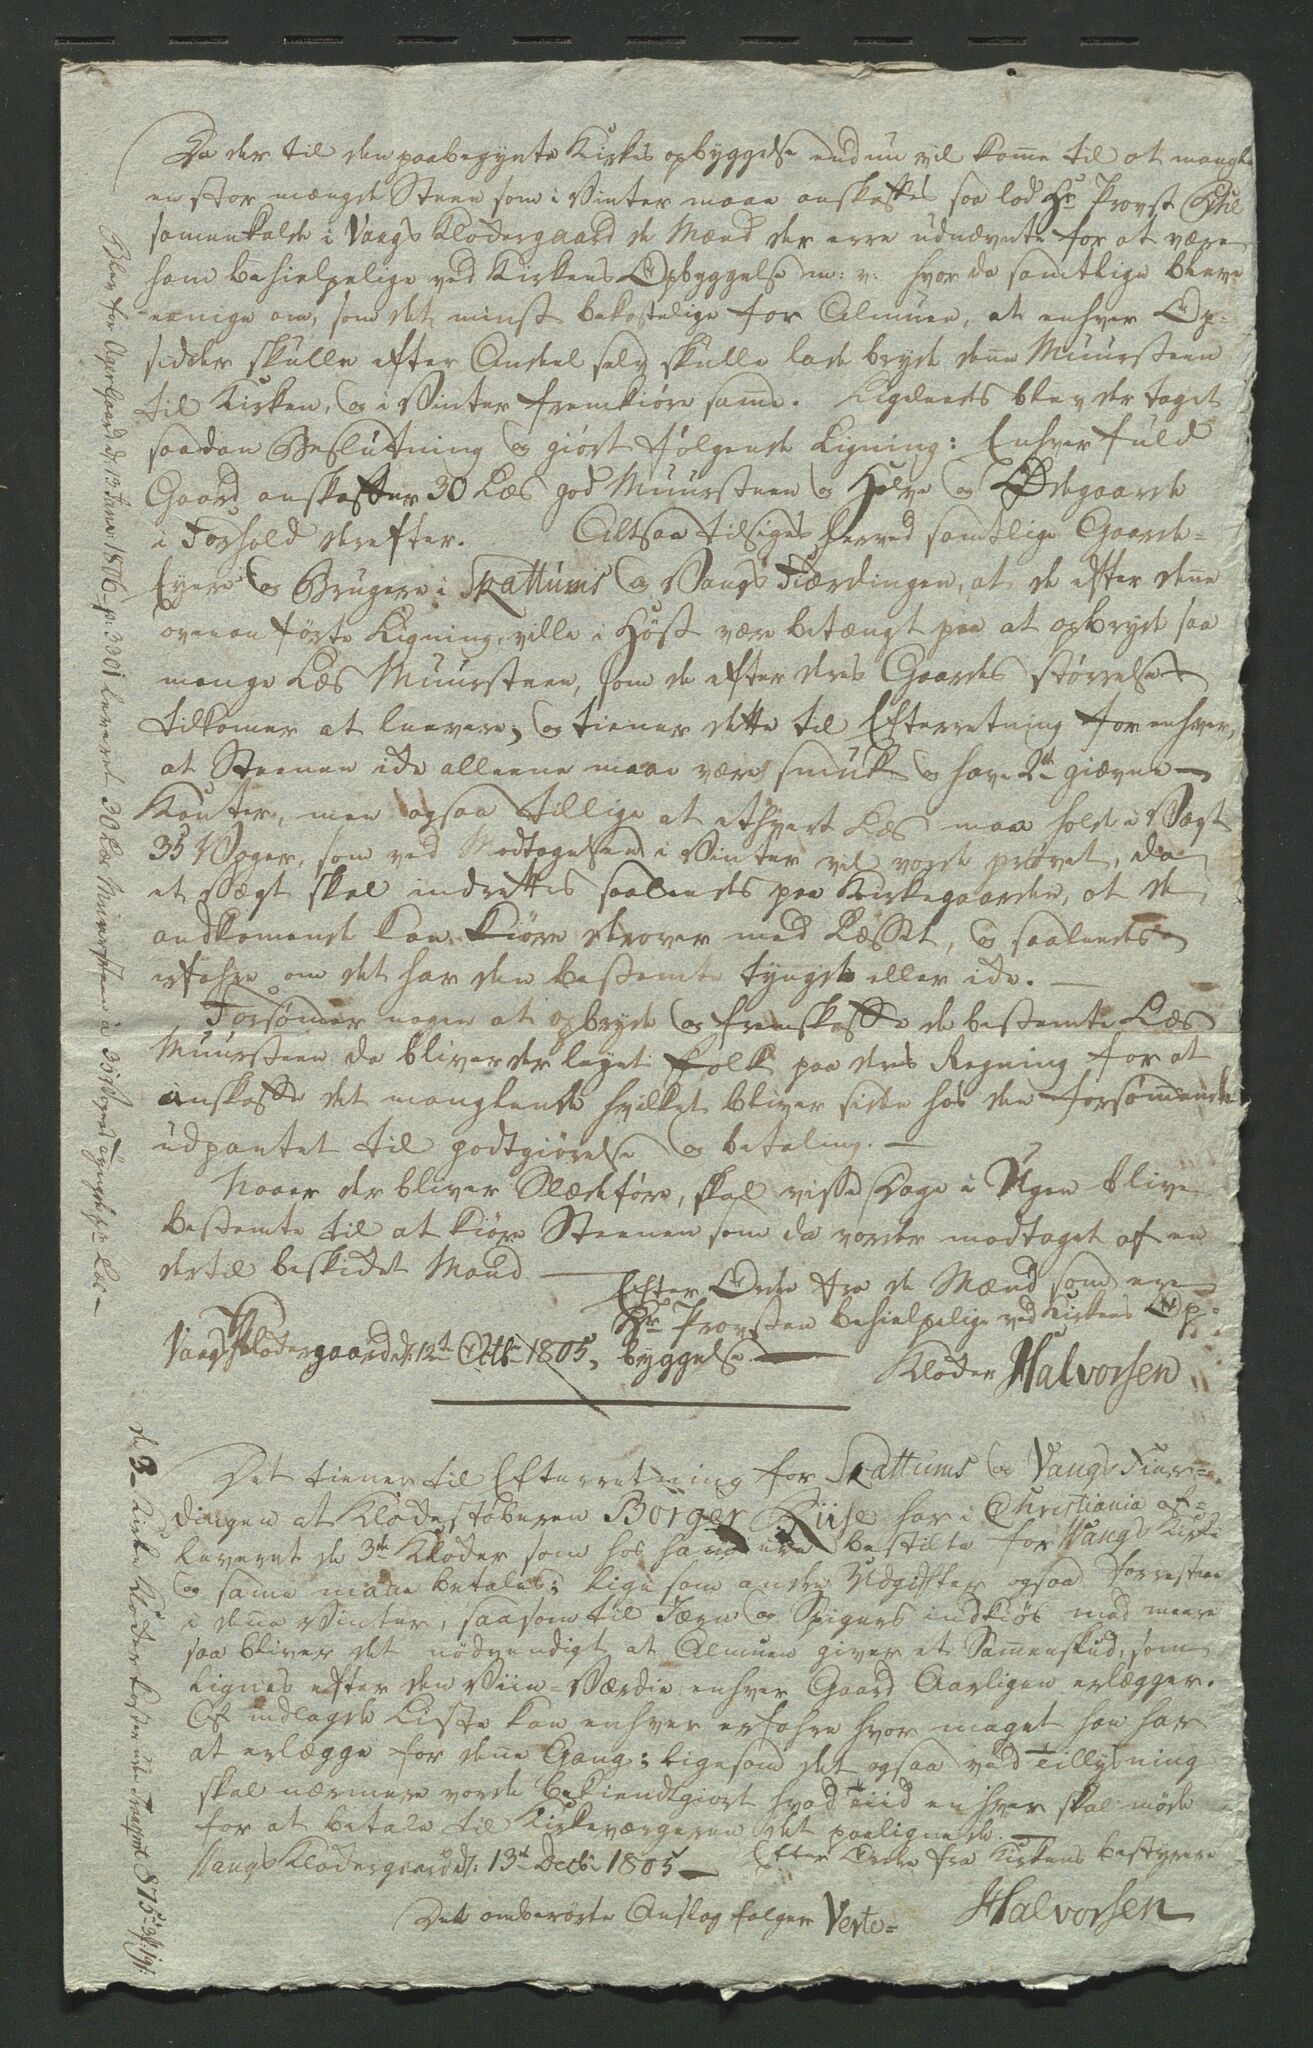 Da der til den paabegynte Kirkes opbyggelse endnu vil kome til at mangle
en stor mængde Steen som i Vinter maae anskaffes saa lod Hr Provst Pihl
samenkalde i Vangs Klodergaard de Mænd der ere udnævnte for at være
ham behielpelige ved Kirkens Opbyggelse m: v: hvor da samtlige bleve
eenige om, som det minst bekostelige for Almuen, at enhver Op-
sidder skulle efter Andeel selv skulle lade bryde denne Muursteen
til Kirken, og i Vinter fremkiøre same. Ligeleeds blev der taget
saadan Beslutning og giort følgende Ligning: Enhver fuld
Gaard anskaffer 30 Læs god Muursteen og Halve og Ødegaarde
i Forhold derefter. Altsaa tilsiges herved samtlige Gaard-
Eyere og Brugere i Skattums og Vangs Fiærdingen, at de efter denne
ovenanførte Ligning ville i Høst være betængt paa at opbryde saa
mange Læs Muursteen, som de efter deres Gaardes størrelse
tilkomer at levere, og tiener dette til Efterretning for enhver,
at Steenen ikke alleene maae være smuk og have 2de giævne
Kanter, men ogsaa tillige at ethvert Læs maae holde i Vægt
35 Voger, som ved Modtagelsen i Vinter vil vorde prøvet, da
et Vægt skal indrettes saaleedes paa Kirkegaarden, at de
andkomende kan kiøre derover med Læsset, og saaleedes
erfahre om det har den bestemte tyngde eller ikke.
Forsømer nogen at opbryde og fremskaffe de bestemte Læs
Muursteen da bliver der leyet Folk paa deres Regning for at
anskaffe det manglende hvilket bliver siden hos den forsømende
udpantet til godtgiørelse og betaling.
Naaer der bliver Slædeføre, skal visse Dage i Ugen blive
bestemte til at kiøre Steenen som da vorder modtaget af en
dertil beskikket Mand.
Efter Ordre fra de Mænd som ere
Hr Provsten behielpelige ved Kirkens Op-
Vangs Klodergaard d: 12te Octbr 1805, byggelse.
Kloder Halvorsen
Det tiener til Efterretning for Skattums og Vangs Fiær-
dingen at Klokestøberen Børger Riise har i Christiania af-
leveret de 3de Kloder som hos ham ere bestilte for Vangs Kirke
og same maae betales; lige som andre Udgifter ogsaa forrestaae
i denne Vinter, saasom til Jærn og Spigers indkiøb med meere
saa bliver det nødvendigt at Almuen giver et Samenskud, som
Lignes efter den Viin-Værdie enhver Gaard Aarligen erlægger.
Af indlagde Liste kan enhver erfahre hvor meget han har
at erlægge for denne Gang; ligesom det ogsaa ved Tillysning
skal nærmere vorde bekiendtgiort hvad Tiid enhver skal møde
for at betale til Kirkeværgeren det paalignede.
Vangs Klodergaard d: 13de Decbr 1805 Efter Ordre fra Kirkens bestyrere
Halvorsen
Det omberørte Anslag følger Verte-
Blev for Agerstgaard d 13 Janv: 1816 - p: 330 leveret 30 Læs Muursteen a 35 Vogers tyngde pr Læs
de 3 Kirke Kloder koster inde Transport 875 rd: